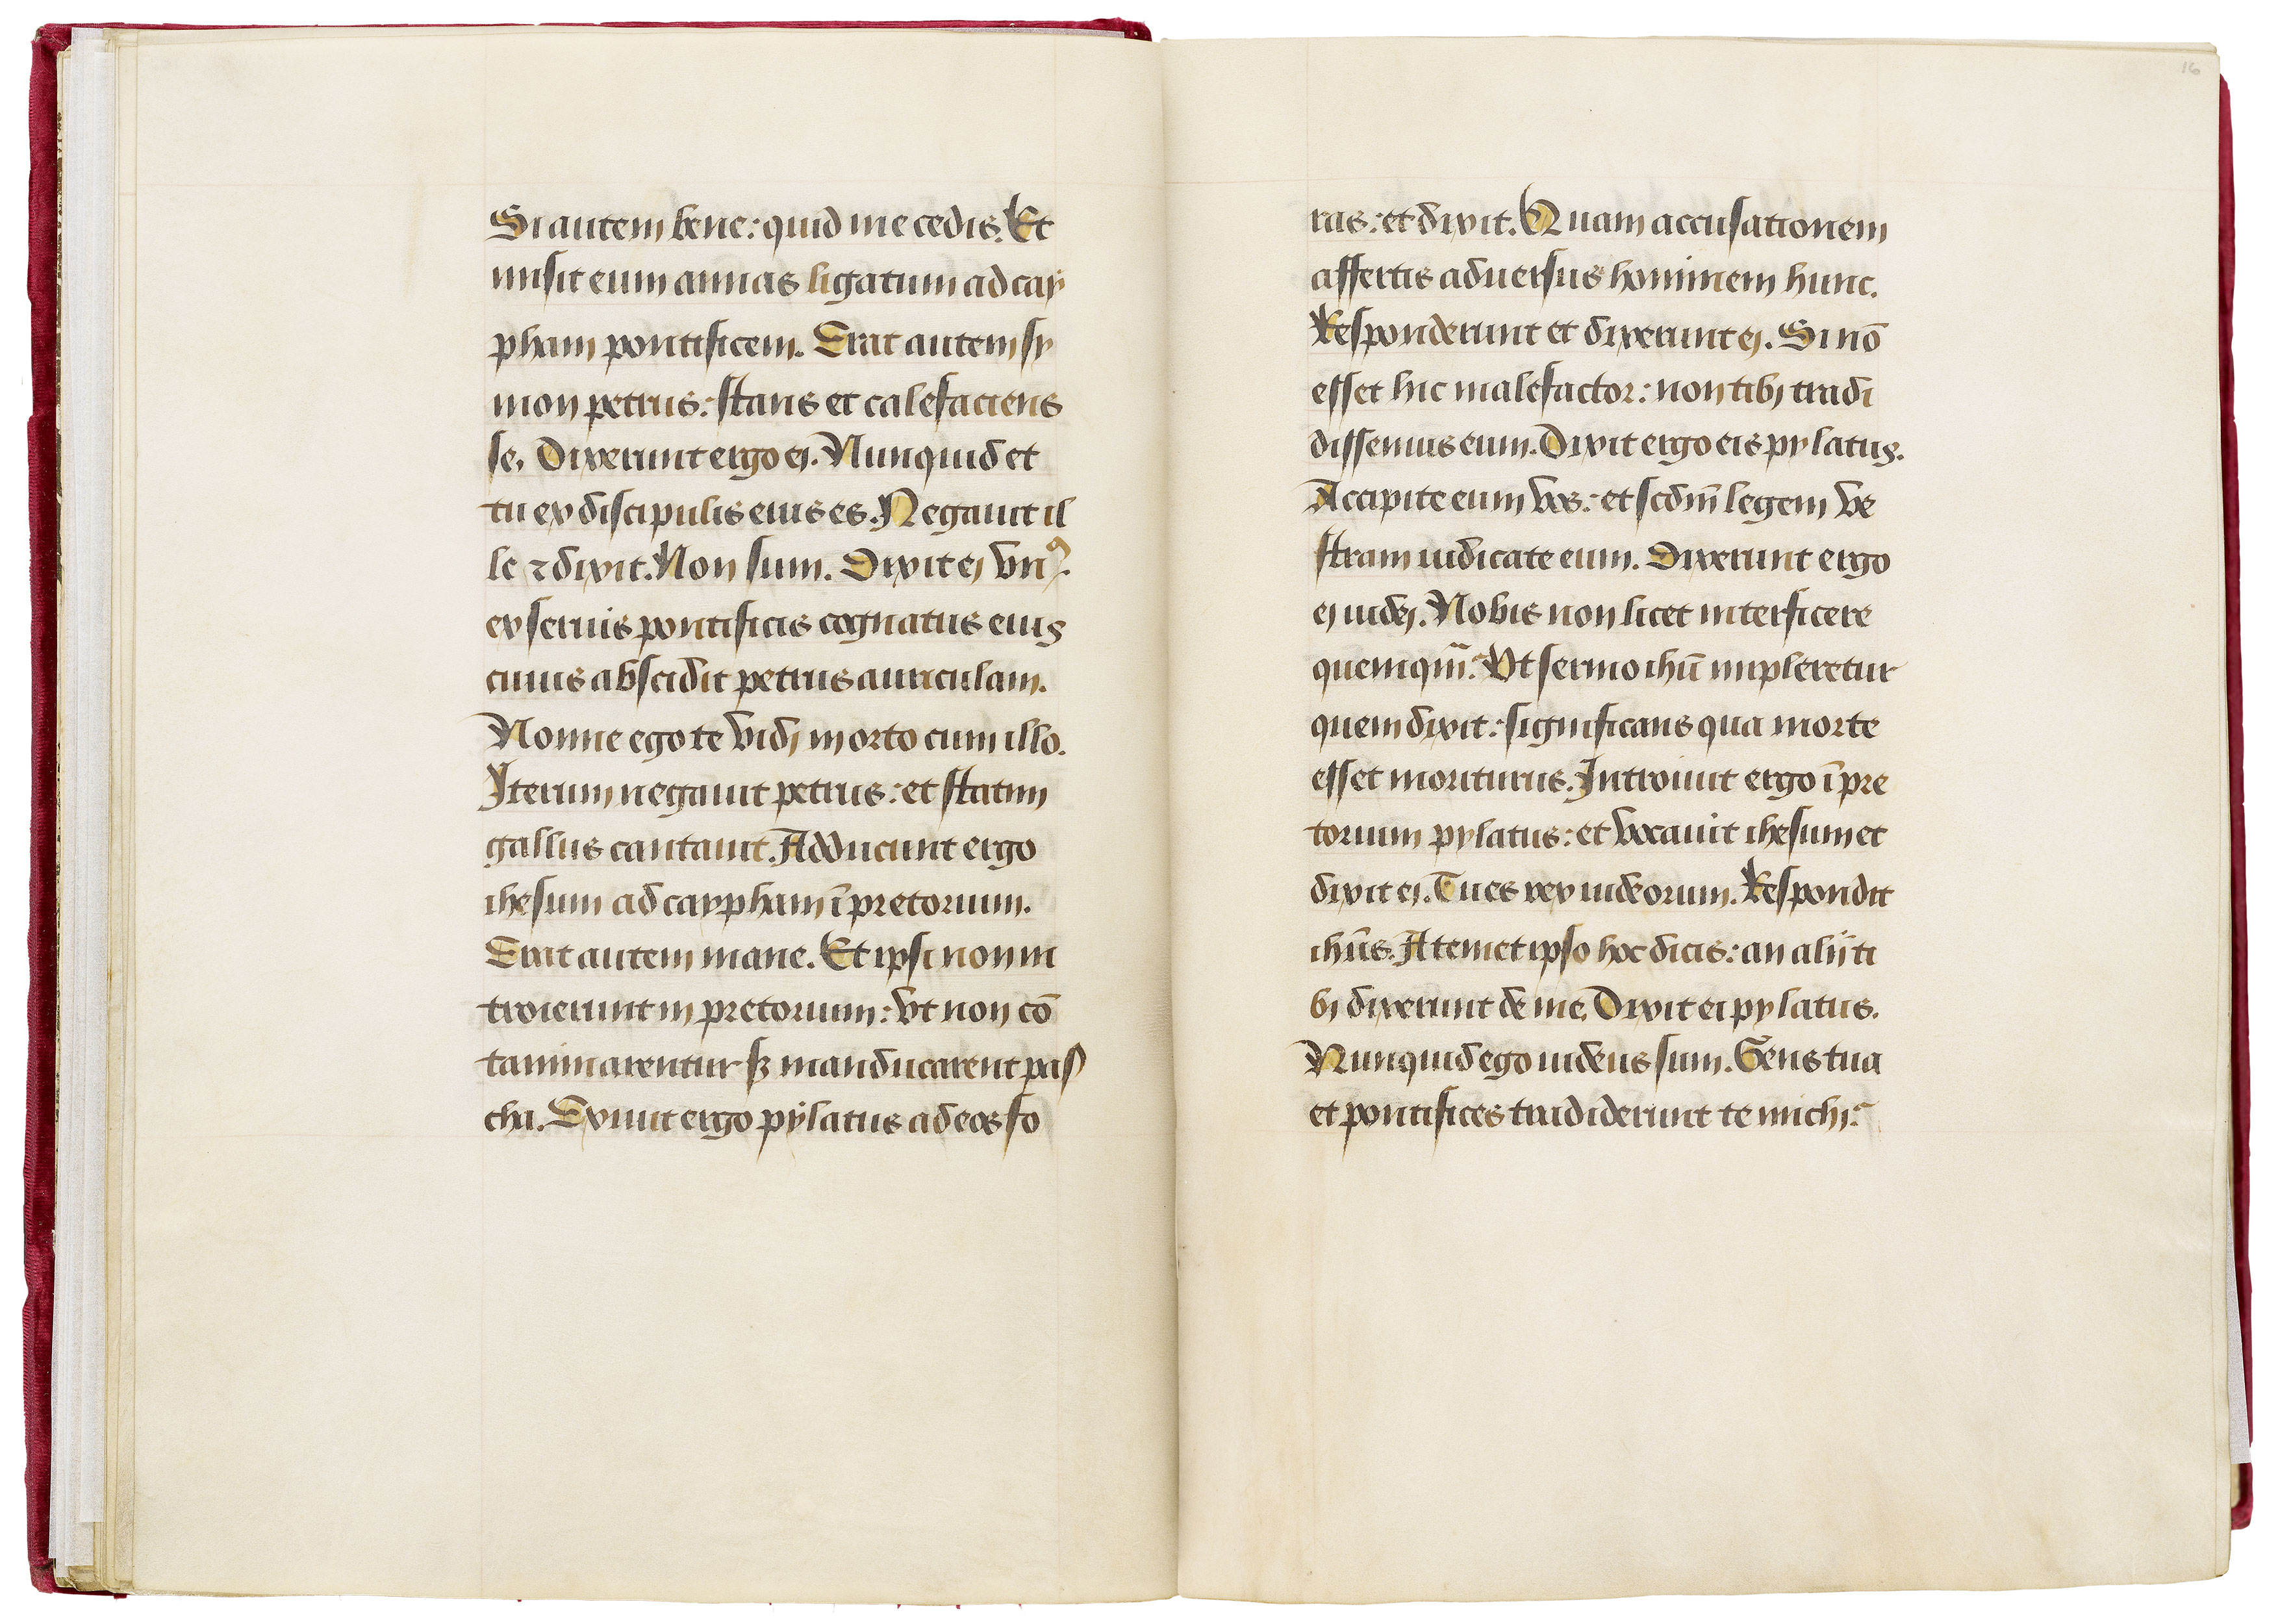 Si autem bene: quid me cedis. Et
misit eum annas ligatum ad cay
pham pontificem. Erat autem sy
mon petrus: stans et calefaciens
se. Dixerunt ergo ej. Nunquid et
tu ex discipulis eius es. Negauit il
le ⁊ dixit. Non sum. Dixit ej vnꝰ.
ex seruis pontificis cognatus eius
cuius abscidit petrus auriculam.
Nonne ego te vidj in orto cum illo.
Jterum negauit petrus: et statim
gallus cantauit. Adducunt ergo
ihesum ad caypham ī pretorium.
Erat autem mane. Et ipsi non in
troierunt in pretorium: vt non cō
taminarentur sꝫ manducarent pas
cha. Exiuit ergo pÿlatus ad eos fo
16
ras: et dixit. Quam accusationem
affertis aduersus hominem hunc.
Responderunt et dixerunt ej. Si nō
esset hic malefactor: non tibj tradi
dissemus eum. Dixit ergo eis pylatus.
Accipite eum vos: et scdm̄ legem ve
stram iudicate eum. Dixerunt ergo
ej iudej. Nobis non licet interficere
quemqm̄: Vt sermo ihū impleretur
quem dixit: significans qua morte
esset moriturus. Introiuit ergo ī pre
torium pylatus: et vocauit ihesum et
dixit ej. Tu es rex iudeorum. Respondit
ihūs. A temet ipso hoc dicis: an alij ti
bj dixerunt de me. Dixit ei pylatus.
Nunquid ego iudeus sum. Gens tua
et pontifices tradiderunt te michj: